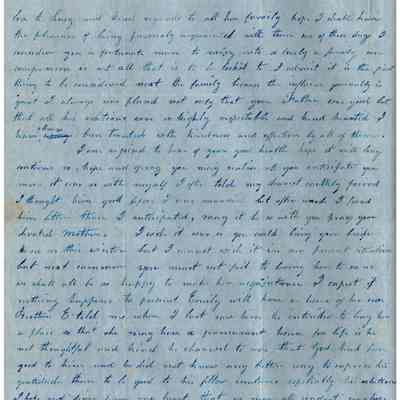 love to Lucy and kind regards to all her family hope I shall have
the pleasure of being personally acquainted with them one of these days I
consider you a fortunate man to marry into a lovely family one
companion is not all that is to be looked to I admit it is the first
thing to be considered next the family because the influence generally is
great I always was pleased not only that your Father was good but
that all his relations were so highly respectable and kind hearted I
have been treated with kindness and affection by all of them.
I am rejoiced to hear of your good health hope it will long
continue so, hope and pray you may realise all you anticipate you
more it was so with myself I often told my dearest earthly friend
I thought him good before I was married but after ward I found
him better than I anticipated, may it be so with you prays your
devoted Mother. I wish it was so you could bring your
home on this winter but I cannot wish it in our present situation
but next summer you must not fail to having her to see us
we shall all be so happy to make her acquaintance I expect if
nothing happens to prevent Emily will have a home of her own
Brother E told me when I last saw him he intended to buy her
a place so that she may have a permanent home for life is he
not thoughtful and kind he observed to me that God had been
good to him and he did not know any better way to express his
gratitude than to be good to his fellow creatures especially his relations